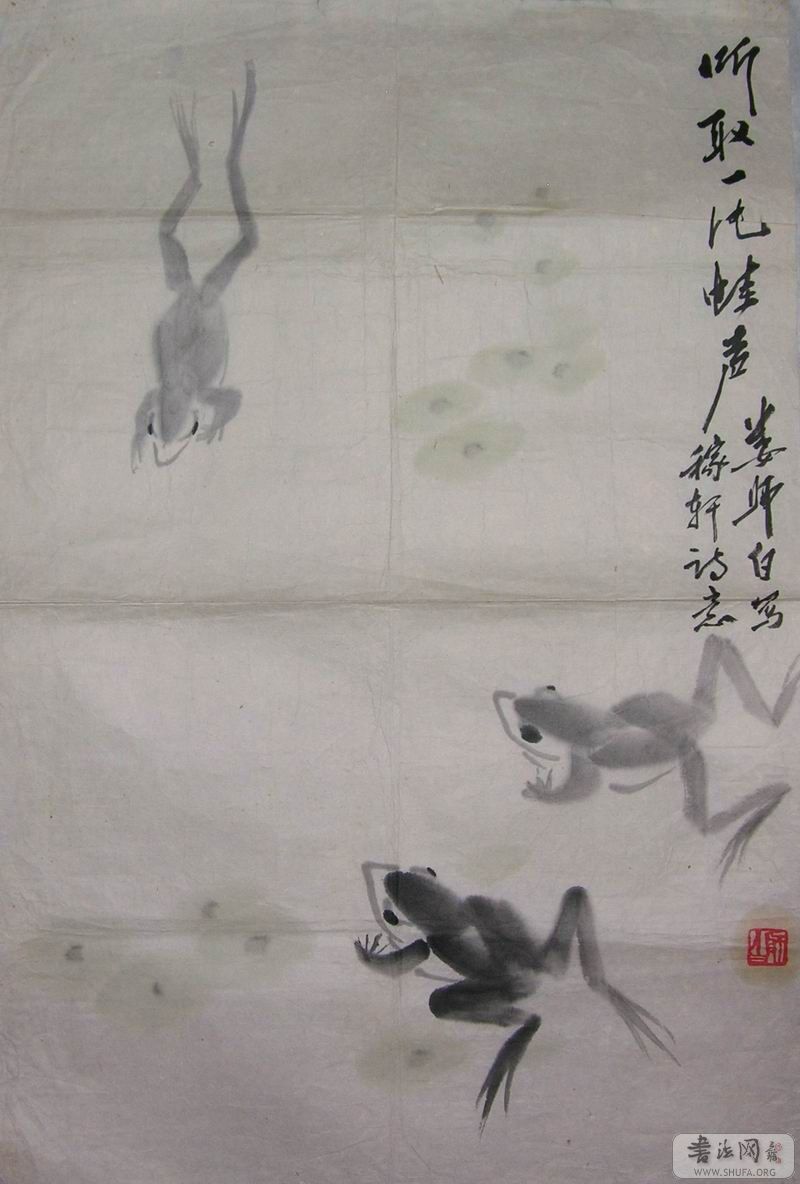 听取一片蛙声
娄师白写
稼轩诗意
書法网
WWW.SHUFA.ORG